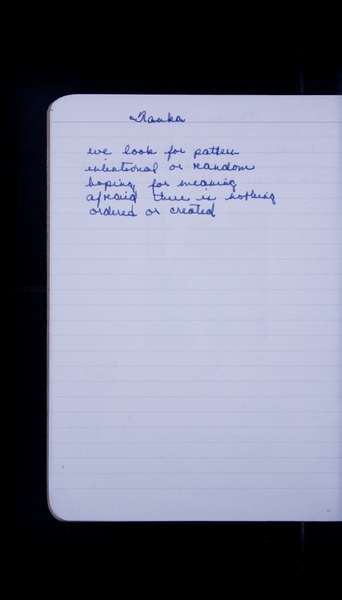 Tanka
we look for pattern
intentional or random
hoping for meaning
afraid there is nothing
ordered or created